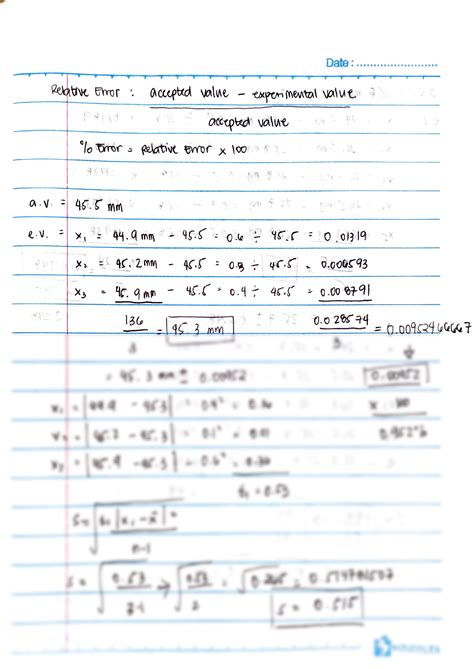 Date :
Relative Error : accepted value - experimental value
accepted value
% Error = relative error x 100
a.v. = 45.5 mm
e.v. = x₁ = 44.9 mm - 45.5 = 0.6 ÷ 45.5 = 0.01319
x₂ = 45.2 mm - 45.5 = 0.3 ÷ 45.5 = 0.006593
x₃ = 45.9 mm - 45.5 = 0.4 ÷ 45.5 = 0.008791
136
3
= 45.3 mm
0.028574
3
= 0.00952466667
= 45.3 mm ± 0.00952
0.00952
x 100
0.952%
x₁ = |44.9 - 45.3| = 0.4² = 0.16
|45.2 - 45.3| = 0.1² = 0.01
|45.9 - 45.3| = 0.6² =
= 0.53
n-1
s = √ 0.53
√ 0.53
2
s = 0.515